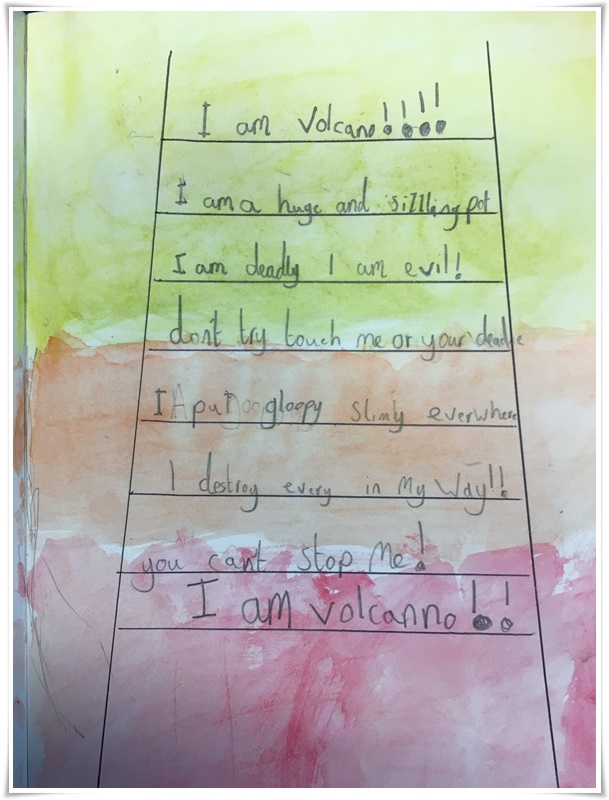 I am Volcano!!!!
I am a huge and sizlling pot
I am deadly I am evil!
don't try touch me or your deade
I put gloopy slimly everwhere
I destroy every in My Way!!
you can't stop Me!
I am volcanno!!